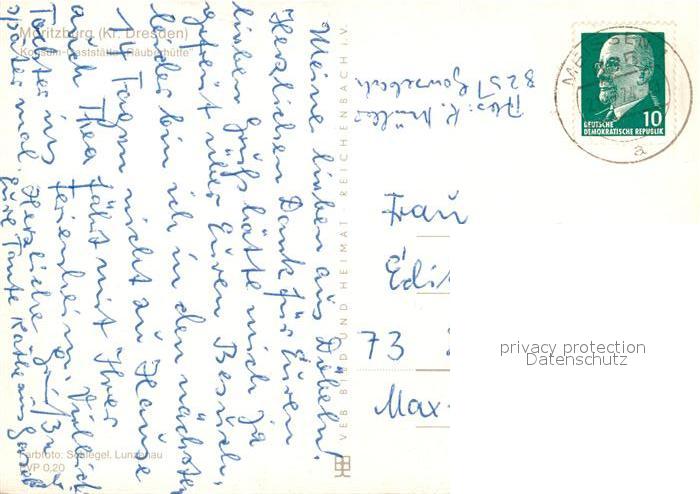 Moritzburg (Kr. Dresden)
Konsum-Gaststätte „Räuberhütte"
Meine lieben aus Döbeln!
Herzlichen Dank für Euren
lieben Gruß, hätte mich ja
gefreut über Euren Besuch,
leider bin ich in den nächsten
14 Tagen nicht zu Hause
auch Thea fährt mit Ihrer
Tochter ins Ferienheim. Vielleicht
später mal. Herzliche Grüße
Eure Tante Käthe aus
Farbfoto: Schlegel, Lunzenau
EVP 0,20
VEB BILD UND HEIMAT REICHENBACH i. V.
Abs: K. Müller
8251
DEUTSCHE
DEMOKRATISCHE REPUBLIK
10
a
Frau
Edi
73
Max-
privacy protection
Datenschutz